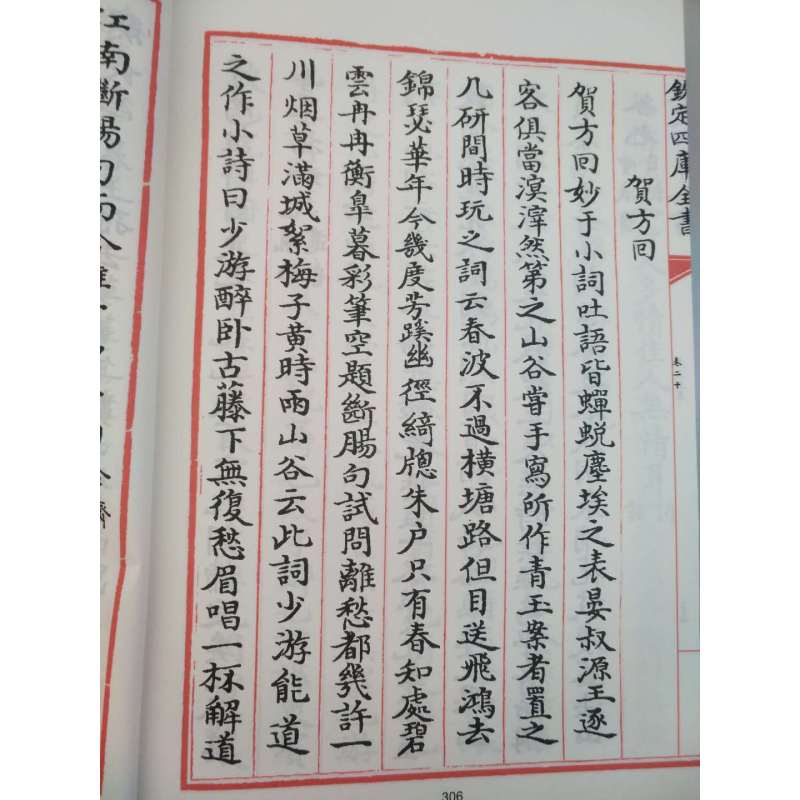 欽定四庫全書
卷二十
賀方回
賀方回妙于小詞吐語皆蟬蛻塵埃之表晏叔源王逐
客俱當溟涬然第之山谷嘗手寫所作青玉案者置之
几研間時玩之詞云春波不過横塘路但目送飛鴻去
錦瑟華年今幾度芳蹊幽徑綺牕朱户只有春知處碧
雲冉冉衡臯暮彩筆空題斷腸句試問離愁都幾許一
川烟草滿城絮梅子黄時雨山谷云此詞少游能道
之作小詩曰少游醉卧古藤下無復愁眉唱一杯解道
江南斷腸句而今唯
306